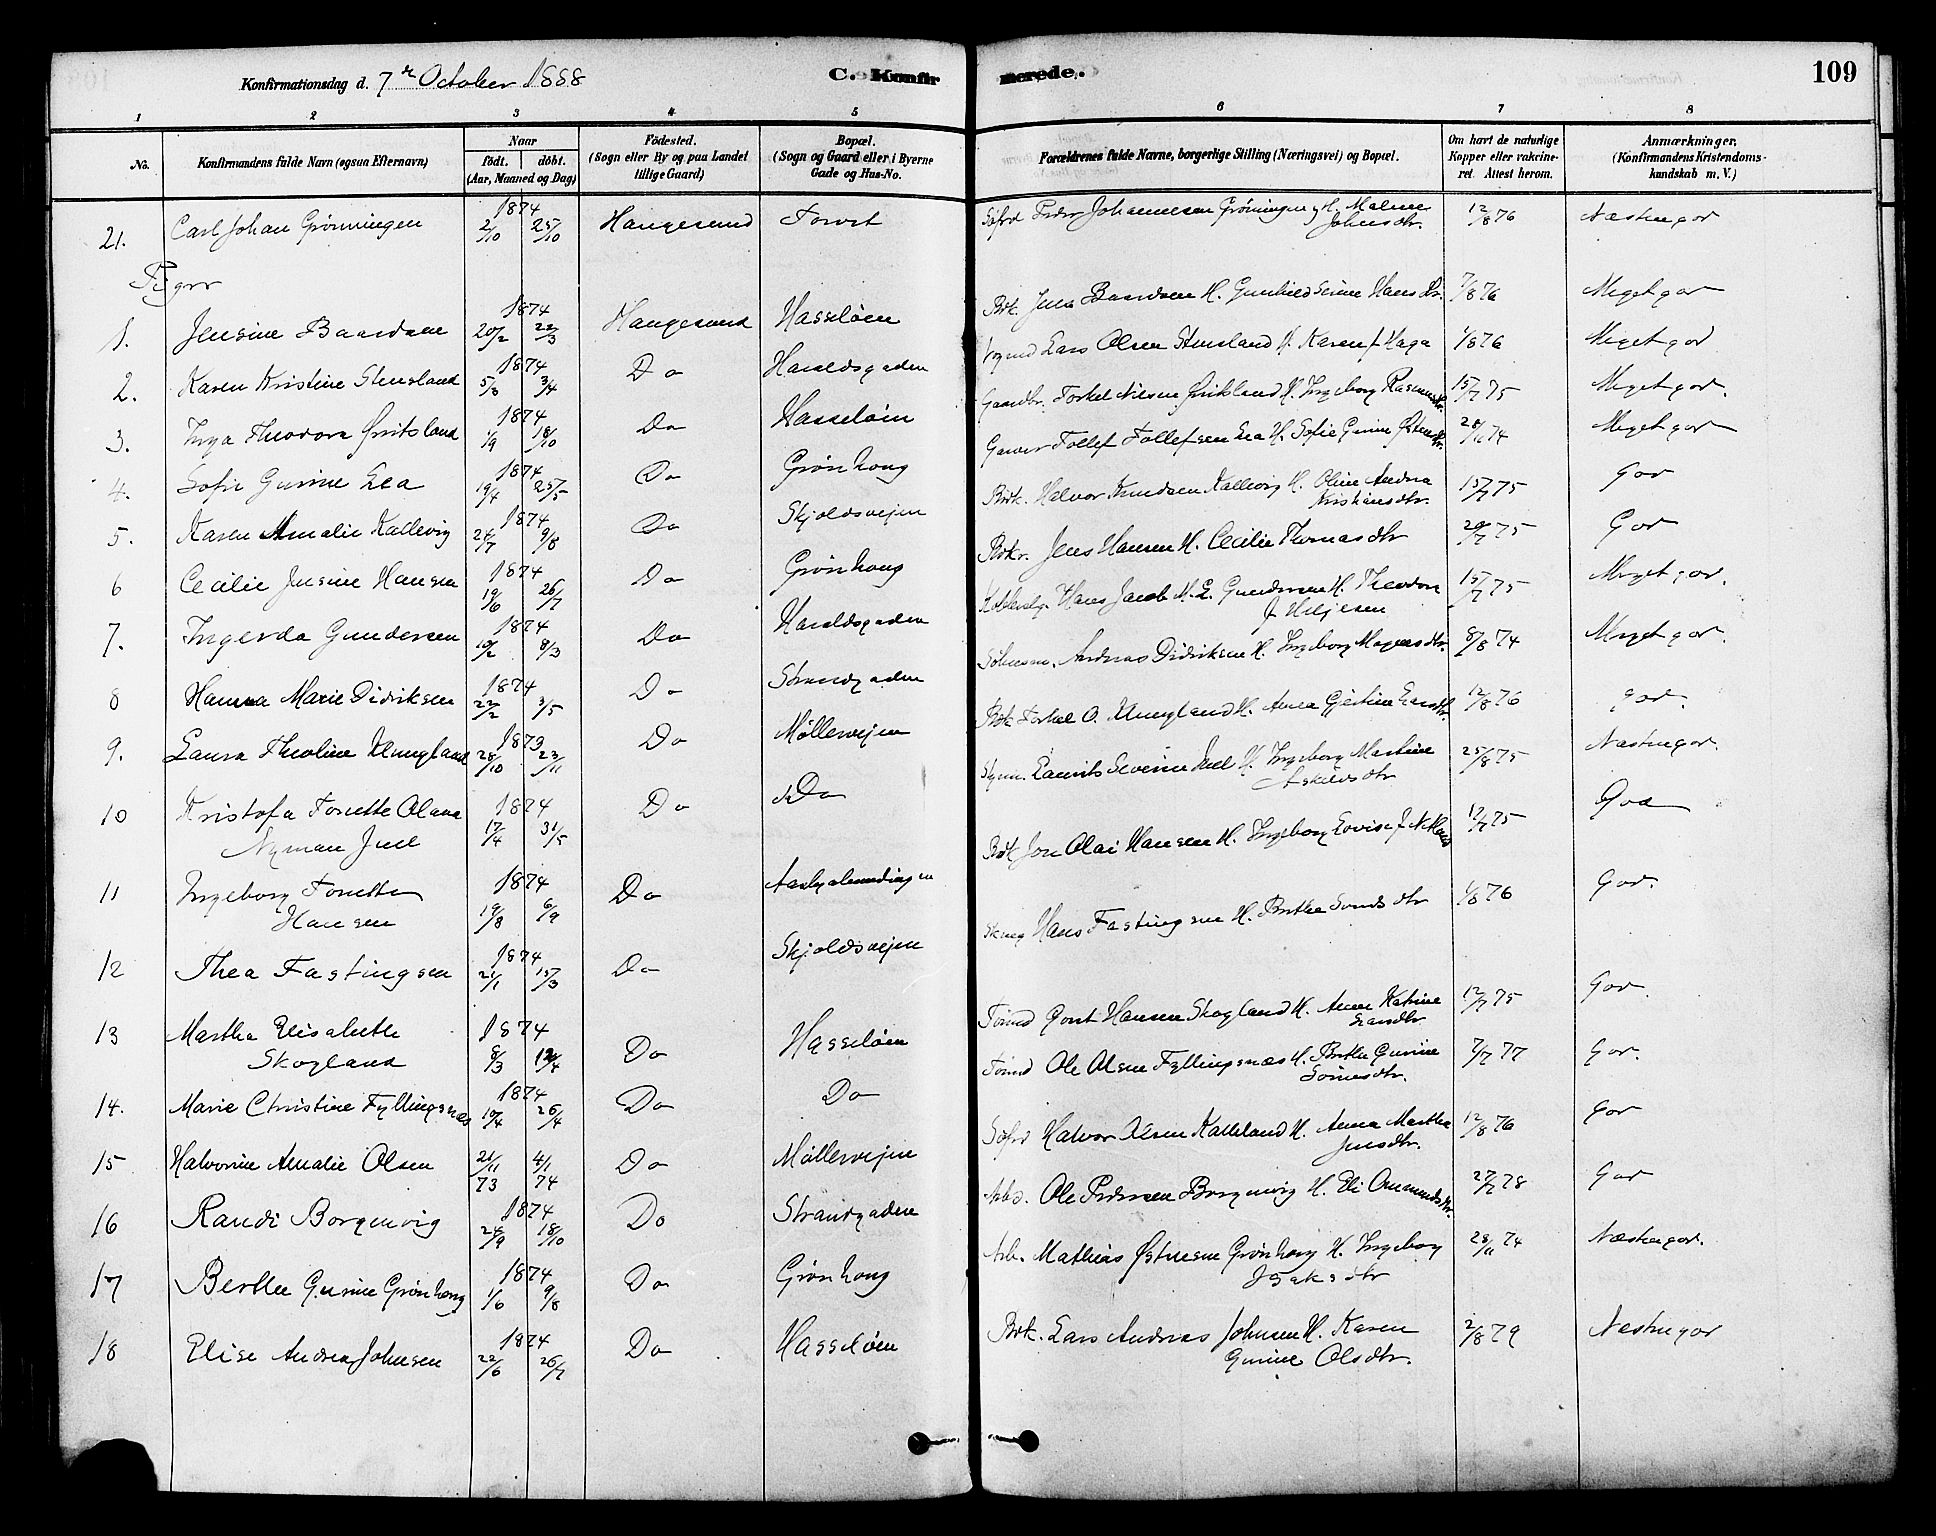 Konfirmationsdag d. 7de October 1888 C. Konfirmerede. 109
1 2 3 4 5 6 7 8
No. Konfirmandens fulde Navn (ogsaa Efternavn) Naar født. døbt. (Aar, Maaned og Dag) Fødested. (Sogn eller By og paa Landet tillige Gaard) Bopæl. (Sogn og Gaard eller i Byerne Gade og Hus-No. Forældrenes fulde Navne, borgerlige Stilling (Næringsvei) og Bopæl. Om havt de naturlige Kopper eller vakcineret. Attest herom. Anmærkninger, (Konfirmandens Kristendomskundskab m. V.)
21. Carl Johan Grønningen 1874 2/10 25/10 Haugesund Torvet Peder Johannesen Grønningen og H. Malene Johnsdtr. 12/8 76 Næstengod
Piger
1. Jensine Baardsen 1874 20/2 22/3 Haugesund Hasseløen Bdk. Jens Baardsen H. Gunhild Serine Hansdtr. 7/8 76 Meget god
2. Karen Kristine Stensland 1874 5/3 3/4 Do Haraldsgaden Lars Olsen Stensland H. Karen f Haga 1/8 76 Meget god
3. Inga Theodora Øritsland 1874 1/9 18/10 Do Hasseløen Gaardbr. Torkel Nilsen Øritsland H. Ingeborg Rasmusdtr. 15/7 75 Meget god.
4. Sofie Gurine Lea 1874 19/4 25/5 Do Grønhoug Garver Tollef Tollefsen Lea H. Sofie Gurine Østensdtr. 28/11 74 Meget god
5. Karen Amalie Kallevig 1874 24/7 9/8 Do Skjoldsvejen Bdk. Halvor Knudsen Kallevig H. Oline Andrea Kristiansdtr. 15/7 75 God
6 Cecilie Jensine Hansen 1874 19/6 26/7 Do Grønhoug Bdkr. Jens Hansen H. Cecilie Thomasdtr 20/7 75 God
7. Ingevda Gundersen 1874 10/2 8/3 Do Haraldsgaden Hans Jacob M. E. Gundersen H. Theodora J. Hiljesen 15/7 75 Meget god.
8 Hanna Marie Didriksen 1874 22/2 3/5 Do Strandgaden Andreas Didriksen H. Ingeborg Magnusdtr. 8/8 74 Meget god.
9. Laura Theoline Klungland 1873 28/10 23/11 Do Møllervejen Bdk Torkel O. Klungland H. Anna Gjertine Larsdtr. 12/8 76 god.
10 Kristofa Tonette Olava Nyman Juel 1874 17/4 31/5 Do Do Laurits Severin Juel H. Ingeborg Martine Askilsdtr 25/8 75 Næstengod.
11 Ingeborg Tonette Hansen 1874 19/8 6/9 Do Bdk Jon Olai Hansen H. Ingeborg Lovise f 12/7 75 God
12 Thea Fastingsen 1874 21/1 15/3 Do Skjoldsvejen Hans Fastingsen H. Berthe Sondsdtr 1/8 76 God.
13 Martha Elisabeth Skogland 1874 8/3 12/4 Do Hasseløen Tømd Gont Hansen Skogland H. Anne Katrine Larsdtr 12/7 75 God.
14. Marie Christine Fyllingsnæs 1874 10/4 26/4 Do Do Tømd Ole Olsen Fyllingsnæs H. Berthe Gurine Sørinesdtr. 7/7 77 God.
15 Halvorine Amalie Olsen 21/11 73 4/1 74 Do Møllervejen Halvor Olsen Kalleland H. Anna Martha Jensdtr. 12/8 76 God
16 Randi Borgenvig 1874 24/9 18/10 Do Strandgaden Arbd. Ole Pedersen Borgenvig H. Eli Omundsdtr. 27/2 78 God
17 Berthe Gurine Grønhoug 1874 1/6 9/8 Do Grønhoug Arb. Mathias Østensen Grønhoug H. Ingeborg Isaksdtr 28/11 74 Næstengod.
18 Elise Andrea Johnsen 1874 22/6 26/7 Do Hasseløen Bdk. Lars Andreas Johnsen H. Karen Gurine Olsdtr. 2/8 79 Næstengod